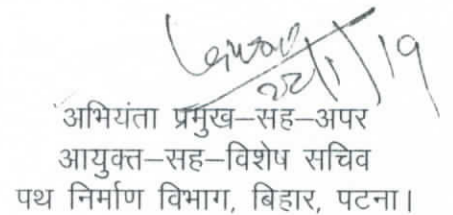 22/1/19
अभियंता प्रमुख–सह–अपर
आयुक्त–सह–विशेष सचिव
पथ निर्माण विभाग, बिहार, पटना।